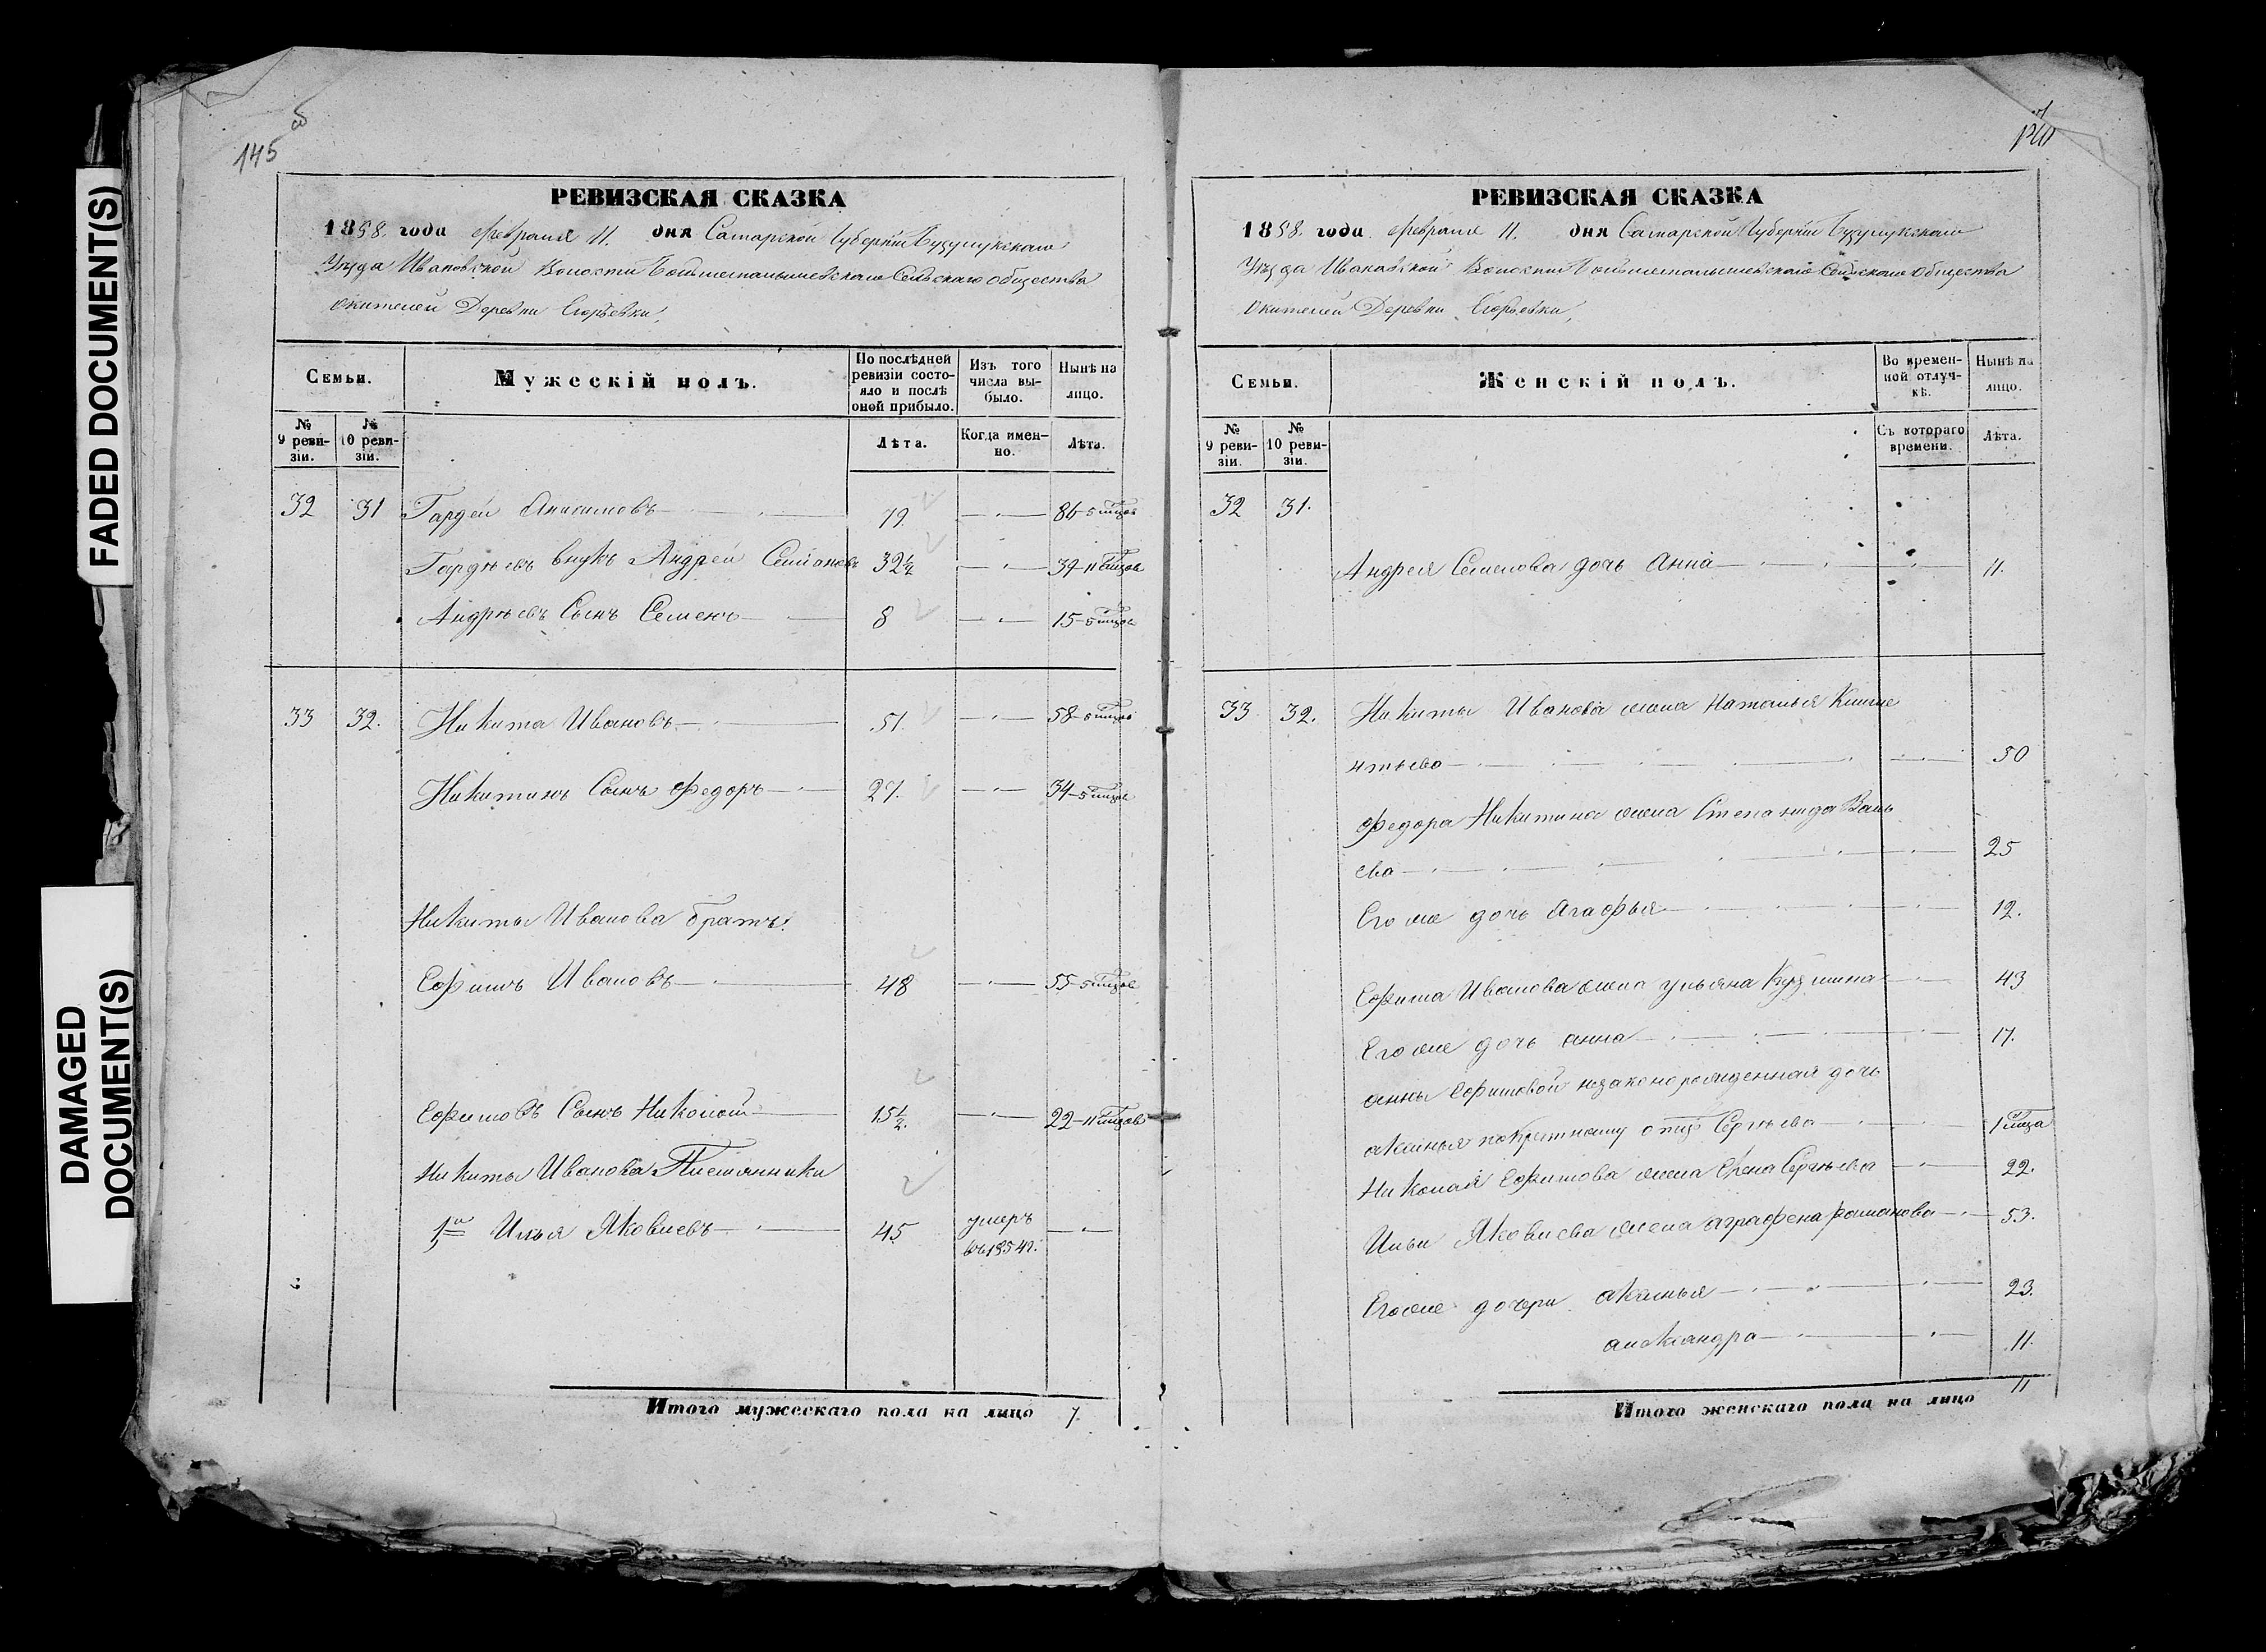 FADED DOCUMENT(S)
DAMAGED
DOCUMENT(S)
145
об
РЕВИЗСКАЯ СКАЗКА
1858 года февраля 11. дня Самарской Губерніи Бузулукскаго
Уѣзда Ивановской Волости Большемалышевскаго Сельскаго общества
жителей Деревни Егорьевки,
Семьи.
Мужескій полъ.
По послѣдней ревизіи состояло и послѣ оной прибыло.
Изъ того числа выбыло.
Нынѣ на лицо.
№ 9 ревизіи.
№ 10 ревизіи.
Лѣта.
Когда именно.
Лѣта.
32 31 Гордей Анисимовъ 79 86-5 мцов
Гордѣевъ внукъ Андрей Семионовъ 32½ 39-11 мцов
Андрѣевъ Сынъ Семенъ 8 15-5 мцов
33 32. Никита Ивановъ 51. 58-5 мцов
Никитинъ Сынъ Федоръ 27. 34-5 мцов
Никиты Иванова братъ
Ефимъ Ивановъ 48 55-5 мцов
Ефимовъ Сынъ Николай 15½. 22-11 мцов
Никиты Иванова Племянники
1й Илья Яковлевъ 45 умеръ
въ 1854г.
Итого мужескаго пола на лицо 7.
РЕВИЗСКАЯ СКАЗКА
1858. года февраля 11. дня Самарской Губерніи Бузулукскаго
Уѣзда Ивановской Волости Большемалышевскаго Сельскаго общества
жителей Деревни Егорьевки,
Семьи.
Женскій полъ.
Во временной отлучкѣ.
Нынѣ на лицо.
№ 9 ревизіи.
№ 10 ревизіи.
Съ котораго времени.
Лѣта.
32 31.
Андрея Семенова дочь Анна 11.
33 32. Никиты Иванова жена Наталья Климе
нтьева 50
Федора Никитина жена Степанида Вась
ева 25
Его же дочь Агафья 12.
Ефима Иванова жена Ульяна Кузмина 43
Его же дочь анна 17.
анны Ефимовой незаконорожденная дочь
аксинья по крестному отцу Сергѣева 1 мцa
Николая Ефимова жена Елена Сергѣева 22.
Ильи Яковлева жена аграфена романова 53.
Его же дочери аксинья 23.
александра 11.
Итого женскаго пола на лицо 11